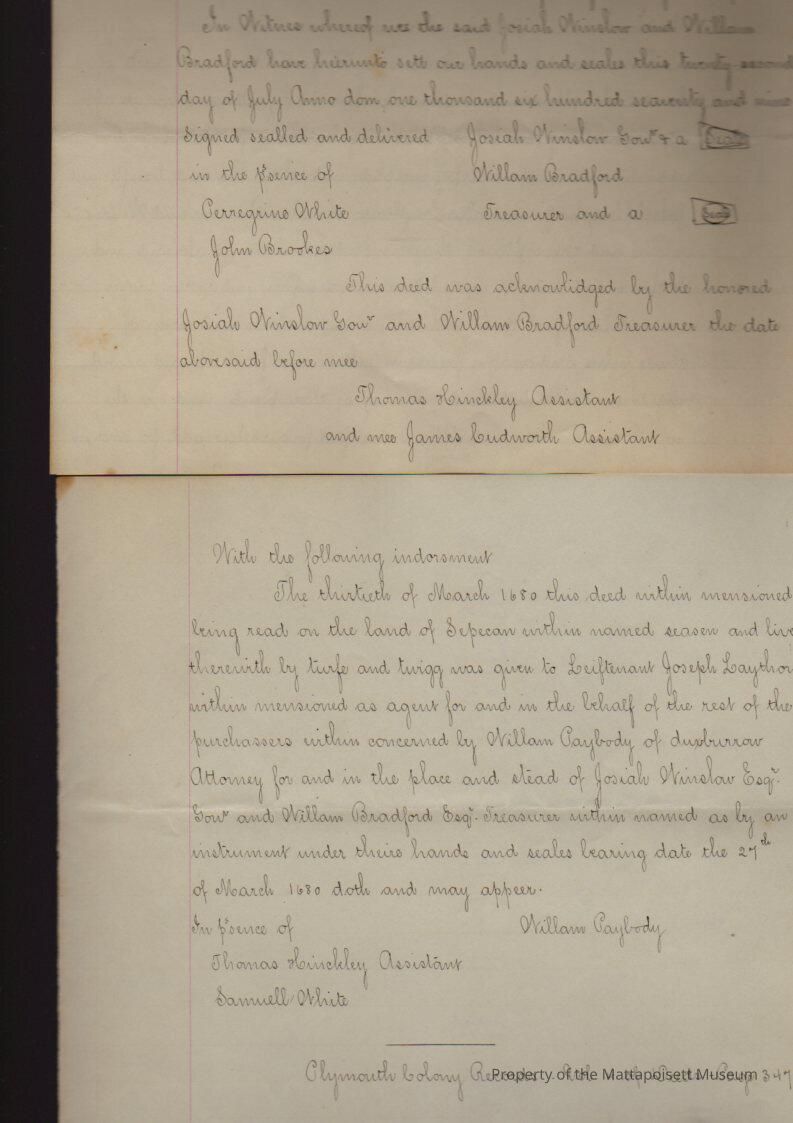 In Witnes whereof wee the said Josiah Winslow and Willam
Bradford have heerunto sett our hands and seales this twenty second
day of July Anno dom one thousand six hundred seaventy and nine
Signed sealled and delivered Josiah Winslow Govr & a Seal
in the psence of Willam Bradford
Perregrine White Treasurer and a Seal
John Brookes
This deed was acknowlidged by the honored
Josiah Winslow Govr and Willam Bradford Treasurer the date
abovesaid before mee
Thomas Hinckley Assistant
and mee James Cudworth Assistant
With the following indorsment
The thirtieth of March 1680 this deed within mensioned
being read on the land of Sepecan within named seasen and
therewith by turfe and twigg was given to Leiftenant Joseph
within mensioned as agent for and in the behalf of the rest of the
purchassers within concerned by Willam Paybody of duxburrow
Attorney for and in the place and stead of Josiah Winslow Esqr.
Govr and Willam Bradford Esqr. Treasurer within named as by an
instrument under theire hands and seales bearing date the 27th
of March 1680 doth and may appeer.
In psence of Willam Paybody
Thomas Hinckley Assistant
Samuell White
Plymouth Colony 347
Property of the Mattapoisett Museum